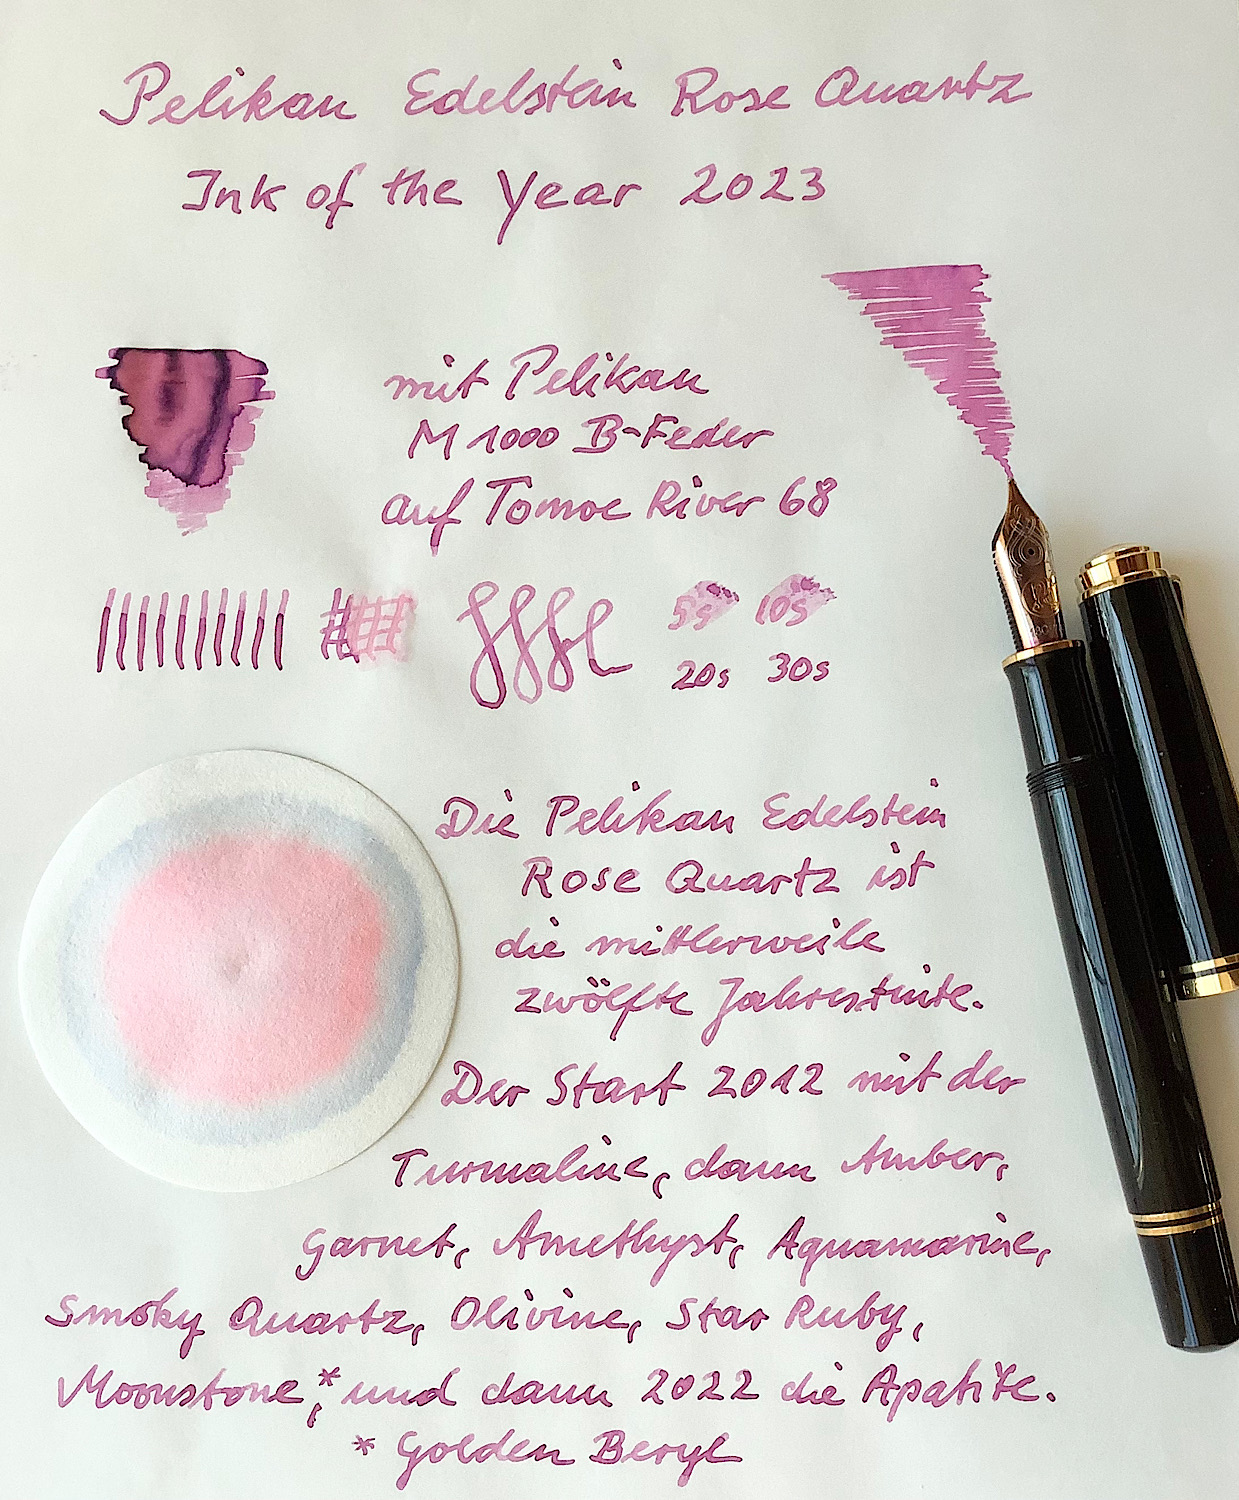 Pelikan Edelstein Rose Quartz
Ink of the Year 2023
mit Pelikan
M 1000 B-Feder
auf Tomoe River 68
5s 10s
20s 30s
Die Pelikan Edelstein
Rose Quartz ist
die mittlerweile
zwölfte Jahrestinte.
Der Start 2012 mit der
Turmaline, dann Amber,
Garnet, Amethyst, Aquamarine,
Smoky Quartz, Olivine, Star Ruby,
Moonstone,* und dann 2022 die Apatite.
* Golden Beryl